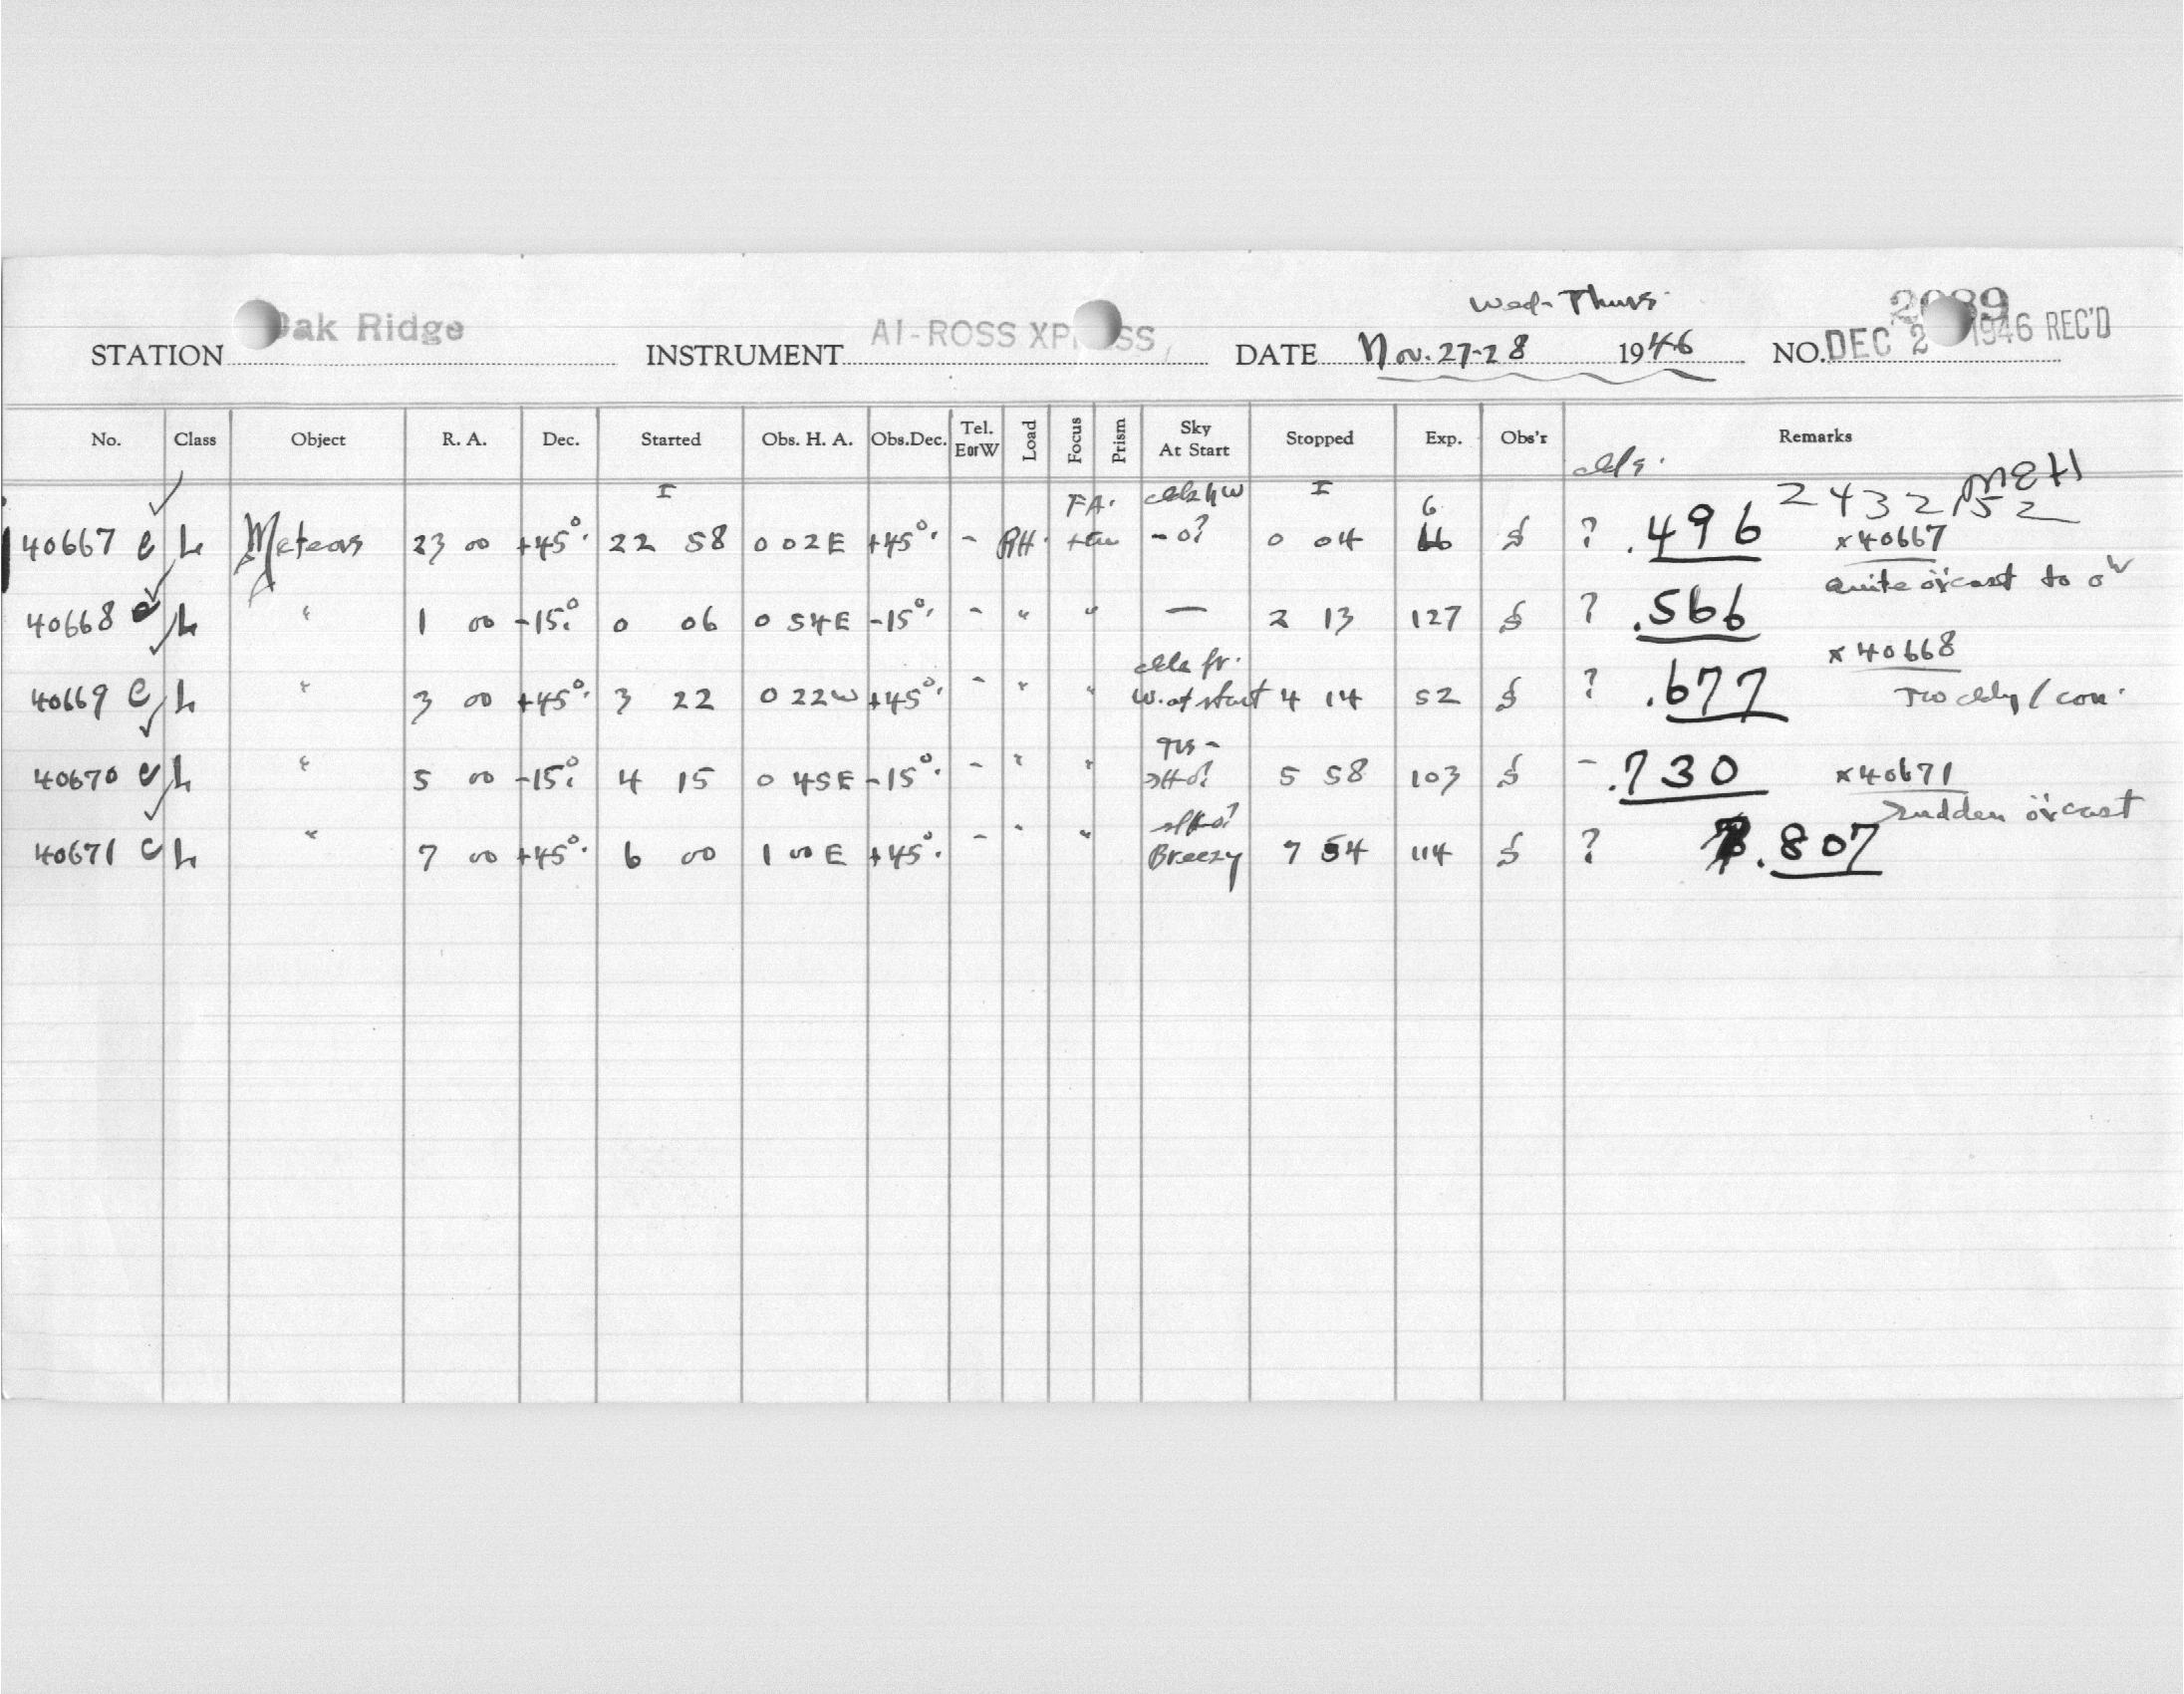 Wed-Thurs.
STATION Oak Ridge INSTRUMENT AI-ROSS XP SS DATE Nov. 27-28 1946 NO. 2089 DEC 2 1946 REC'D
No. Class Object R. A. Dec. Started Obs. H. A. Obs.Dec. Tel. EorW Load Focus Prism Sky At Start Stopped Exp. Obs'r Remarks
40667 e L Meteors 23 00 +45°. 22 58 0 02E +45°. - RH. - o? 0 04 66 S ? .496 2432152
x40667
40668 e L " 1 00 -15° 0 06 0 54E -15°. - " " — 2 13 127 S ? .566
x40668
40669 e L " 3 00 +45°. 3 22 0 22W +45°. - " " W. at start 4 14 52 S ? .677
40670 e L " 5 00 -15° 4 15 0 45E -15°. - " " 5 58 103 S - .730
x40671
Sudden o'cast
40671 e L " 7 00 +45°. 6 00 1 00E +45°. - " " Breezy 7 54 114 S ? .807